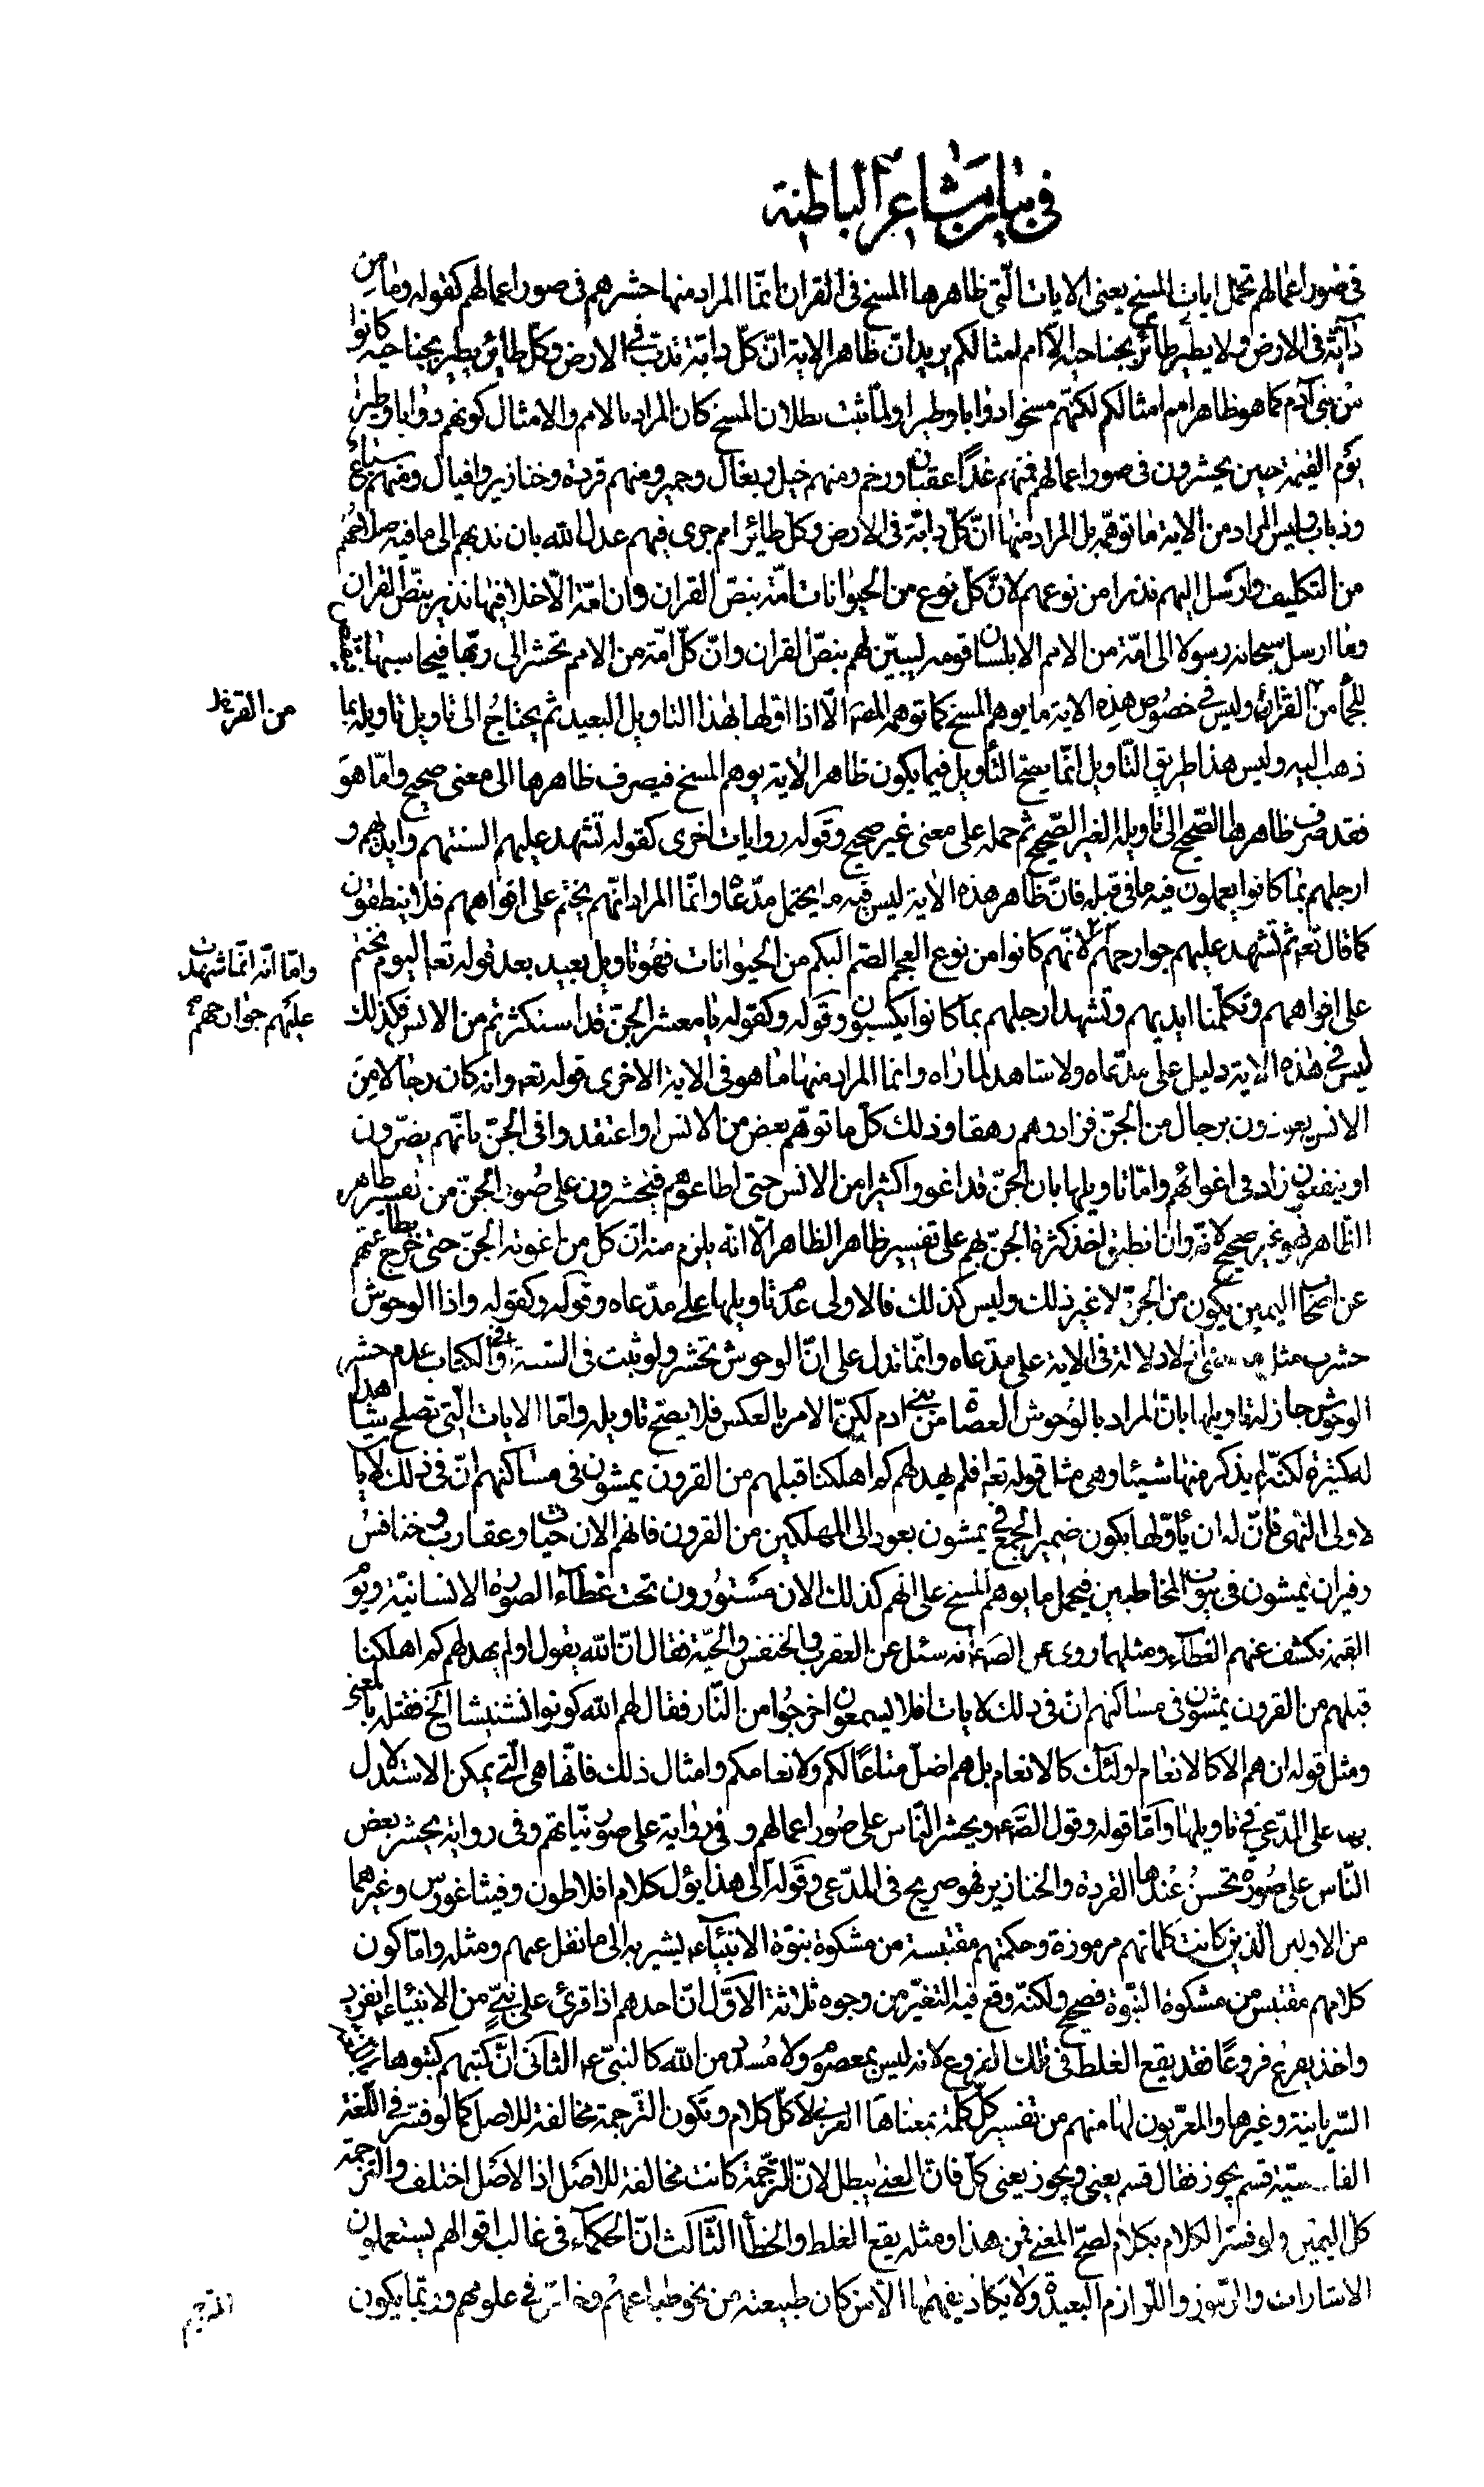 في بيان مشاعر الباطنة
في صور اعمالهم تحمل ايات المسخ يعني الايات الّتي ظاهرها المسخ في القران انّما المراد منها حشرهم في صور اعمالهم كقوله وما من
دآبّة في الارض ولا يطير طائر بجناحيه الّا امم امثالكم يريد انّ ظاهر الاية انّ كلّ دابّة تدبّ في الارض وكلّ طائر يطير بجناحيه كانوا
من بني آدم كما هو ظاهر امم امثالكم لكنّهم مسخوا دوابا وطيرا ولمّا ثبت بطلان المسخ كان المراد بالامم والامثال كونهم دوابا وطيرا
يوم القيمة حين يحشرون في صور اعمالهم فمنهم غدًا عقبان ورخم ومنهم خيل وبغال وحمير ومنهم قردة وخنازير وافيال ومنهم سباع
وذباب وليس المراد من الاية ما توهّمه بل المراد منها انّ كلّ دابّة في الارض وكلّ طائر امم جرى فيهم عدل الله بان ندبهم الى ما فيه صلاحهم
من التكليف وارسل اليهم نذيرا من نوعهم لانّ كلّ نوع من الحيوانات امّة بنصّ القران وان امّة الّا خلا فيها نذير بنصّ القران
وما ارسل سبحانه رسولا الى امّة من الامم الا بلسان قومه ليبيّن لهم بنصّ القران وانّ كلّ امّة من الامم تحشر الى ربّها فيحاسبها
للجمّا من القرناء وليس في خصوص هذه الاية ما يوهم المسخ كما توهمه المص الّا اذا اوّلها بهذا التاويل البعيد ثم يحتاج الى تاويل تاويله بما
من القرناء
ذهب اليه وليس هذا طريق التّاويل انّما يصحّ التأويل فيما يكون ظاهر الاية يوهم المسخ فيصرف ظاهرها الى معنى صحيح وامّا هو
فقد صرف ظاهرها الصّحيح الى تاويله الغير الصّحيح ثم حمله على معنى غير صحيح وقوله روايات اخرى كقوله تشهد عليهم السنتهم وايديهم و
ارجلهم بما كانوا يعملون فيه ما في قبله فانّ ظاهر هذه الاية ليس فيه ما يحتمل مدّعاه وانّما المراد انّهم يختم على افواههم فلا ينطقون
كما قال تعم ثم تشهد عليهم جوارحهم لانّهم كانوا من نوع العجم الصّم البكم من الحيوانات فهو تاويل بعيد بعد قوله تعه اليوم نختم
وامّا انّه انّما شهدت
عليهم جوارحهم
على افواههم وتكلّمنا ايديهم وتشهد ارجلهم بما كانوا يكسبون وقوله وكقوله يا معشر الجنّ قد استكثرتم من الانس فكذلك
ليس في هذه الاية دليل على مدّعاه ولا شاهد لما رآه وانما المراد منها ما هو في الاية الاخرى قوله تعه وانه كان رجال من
الانس يعوذون برجال من الجنّ فزادوهم رهقا وذلك كلّ ما توهّم بعض من الانس او اعتقدوا في الجنّ بانّهم يضرّون
او ينفعون زاد في اغوائهم وامّا تاويلها بان الجنّ قد اغووا كثيرا من الانس حتى اطاعوهم فيحشرون على صور الجنّ من تفسير ظاهر
الظّاهر فهو غير صحيح لانّه وان انطبق اخذ كثرة الجنّ بهم على تفسير ظاهر الظاهر الّا انّه يلزم منه انّ كلّ من اغوته الجنّ حتى خرج بطاعتهم
عن اصحاب اليمين يكون من الجنّ لا غير ذلك وليس كذلك فالاولى عدم تاويلها على مدّعاه وقوله وكقوله واذا الوحوش
حشرت مثل لا دلالة في الاية على مدّعاه وانّما تدل على انّ الوحوش تحشر ولو ثبت في السّنة وفي الكتاب عدم حشر
الوحوش جاز له تاويلها بانّ المراد بالوحوش العصاة من بني ادم لكنّ الامر بالعكس فلا يصحّ تاويله وامّا الايات الّتي تصلح بيانا هذا
له كثيرة لكنّه لم يذكر منها شيئا وهي مثل قوله تعه افلم يهد لهم كم اهلكنا قبلهم من القرون يمشون في مساكنهم انّ في ذلك لايات
لاولى النّهى فانّ له ان يأوّلها بكون ضمير الجمع في يمشون يعود الى المهلكين من القرون فانهم الان حيّات وعقارب وخنافس
وفيران يمشون في بيوت المخاطبين فيحمل ما يوهم المسخ على انهم كذلك الان مستورون تحت غطآء الصورة الانسانيّة ويوم
القيمة نكشف عنهم الغطآء ومثلها روى عن الصم انه سئل عن العقرب والخنفس والحيّة فقال انّ الله يقول اولم يهد لهم كم اهلكنا
قبلهم من القرون يمشون في مساكنهم انّ في ذلك لايات افلا يسمعون اخرجوا من النّار فقال لهم الله كونوا نشنيشا الخ فقتله بالمعنى
ومثل قوله ان هم الا كالانعام اولئك كالانعام بل هم اضلّ متاعًا لكم ولانعامكم وامثال ذلك فانّها هي الّتي يمكن الاستدلال
بها على المدّعى في تاويلها وامّا قوله وقول الصّم ويحشر النّاس على صور اعمالهم و في رواية على صور نيّاتهم وفي رواية يحشر بعض
النّاس على صورة تحسن عندها القردة والخنازير فهو صريح في المدّعى وقوله الى هذا يؤل كلام افلاطون وفيثاغورس وغيرهما
من الاولين الّذين كانت كلماتهم مرموزة وحكمتهم مقتبسة من مشكوة نبوّة الانبيآء يشير به الى ما نقل عنهم ومثله وامّا كون
كلامهم مقتبس من مشكوة النّبوة فصحيح ولكنّه وقع فيه التغيّر من وجوه ثلاثة الاوّل انّ احدهم اذا قرئ على نبيّ من الانبياء انفرد
واخذ يفرع فروعًا فقد يقع الغلط في تلك الفروع لانه ليس بمعصوم ولا مسدّد من الله كالنبيّ عم الثّاني انّ كتبهم كتبوها
السّريانية وغيرها والمعرّبون لها منهم من تفسير كلّ كلمة بمعناها العربي لا كلّ كلام وتكون الترجمة مخالفة للاصل كما لو فسّر في اللّغة
الفارسيّة قسم يجوز فقال قسم يعني ويجوز يعني كلّ فانّ المعنى يبطل لانّ الترجمة كانت مخالفة للاصل اذا الاصل اختلف والترجمة
كل اليمين ولو فسّر الكلام بكلام لصحّ المعنى فمن هذا ومثله يقع الغلط والخطأ الثّالث انّ الحكمآء في غالب اقوالهم يستعملون
الاشارات والرّموز واللّوازم البعيدة ولا يكاد يفهمها الّا من كان طبيعته من نحو طباعهم في علومهم وربّما يكون
المترجم